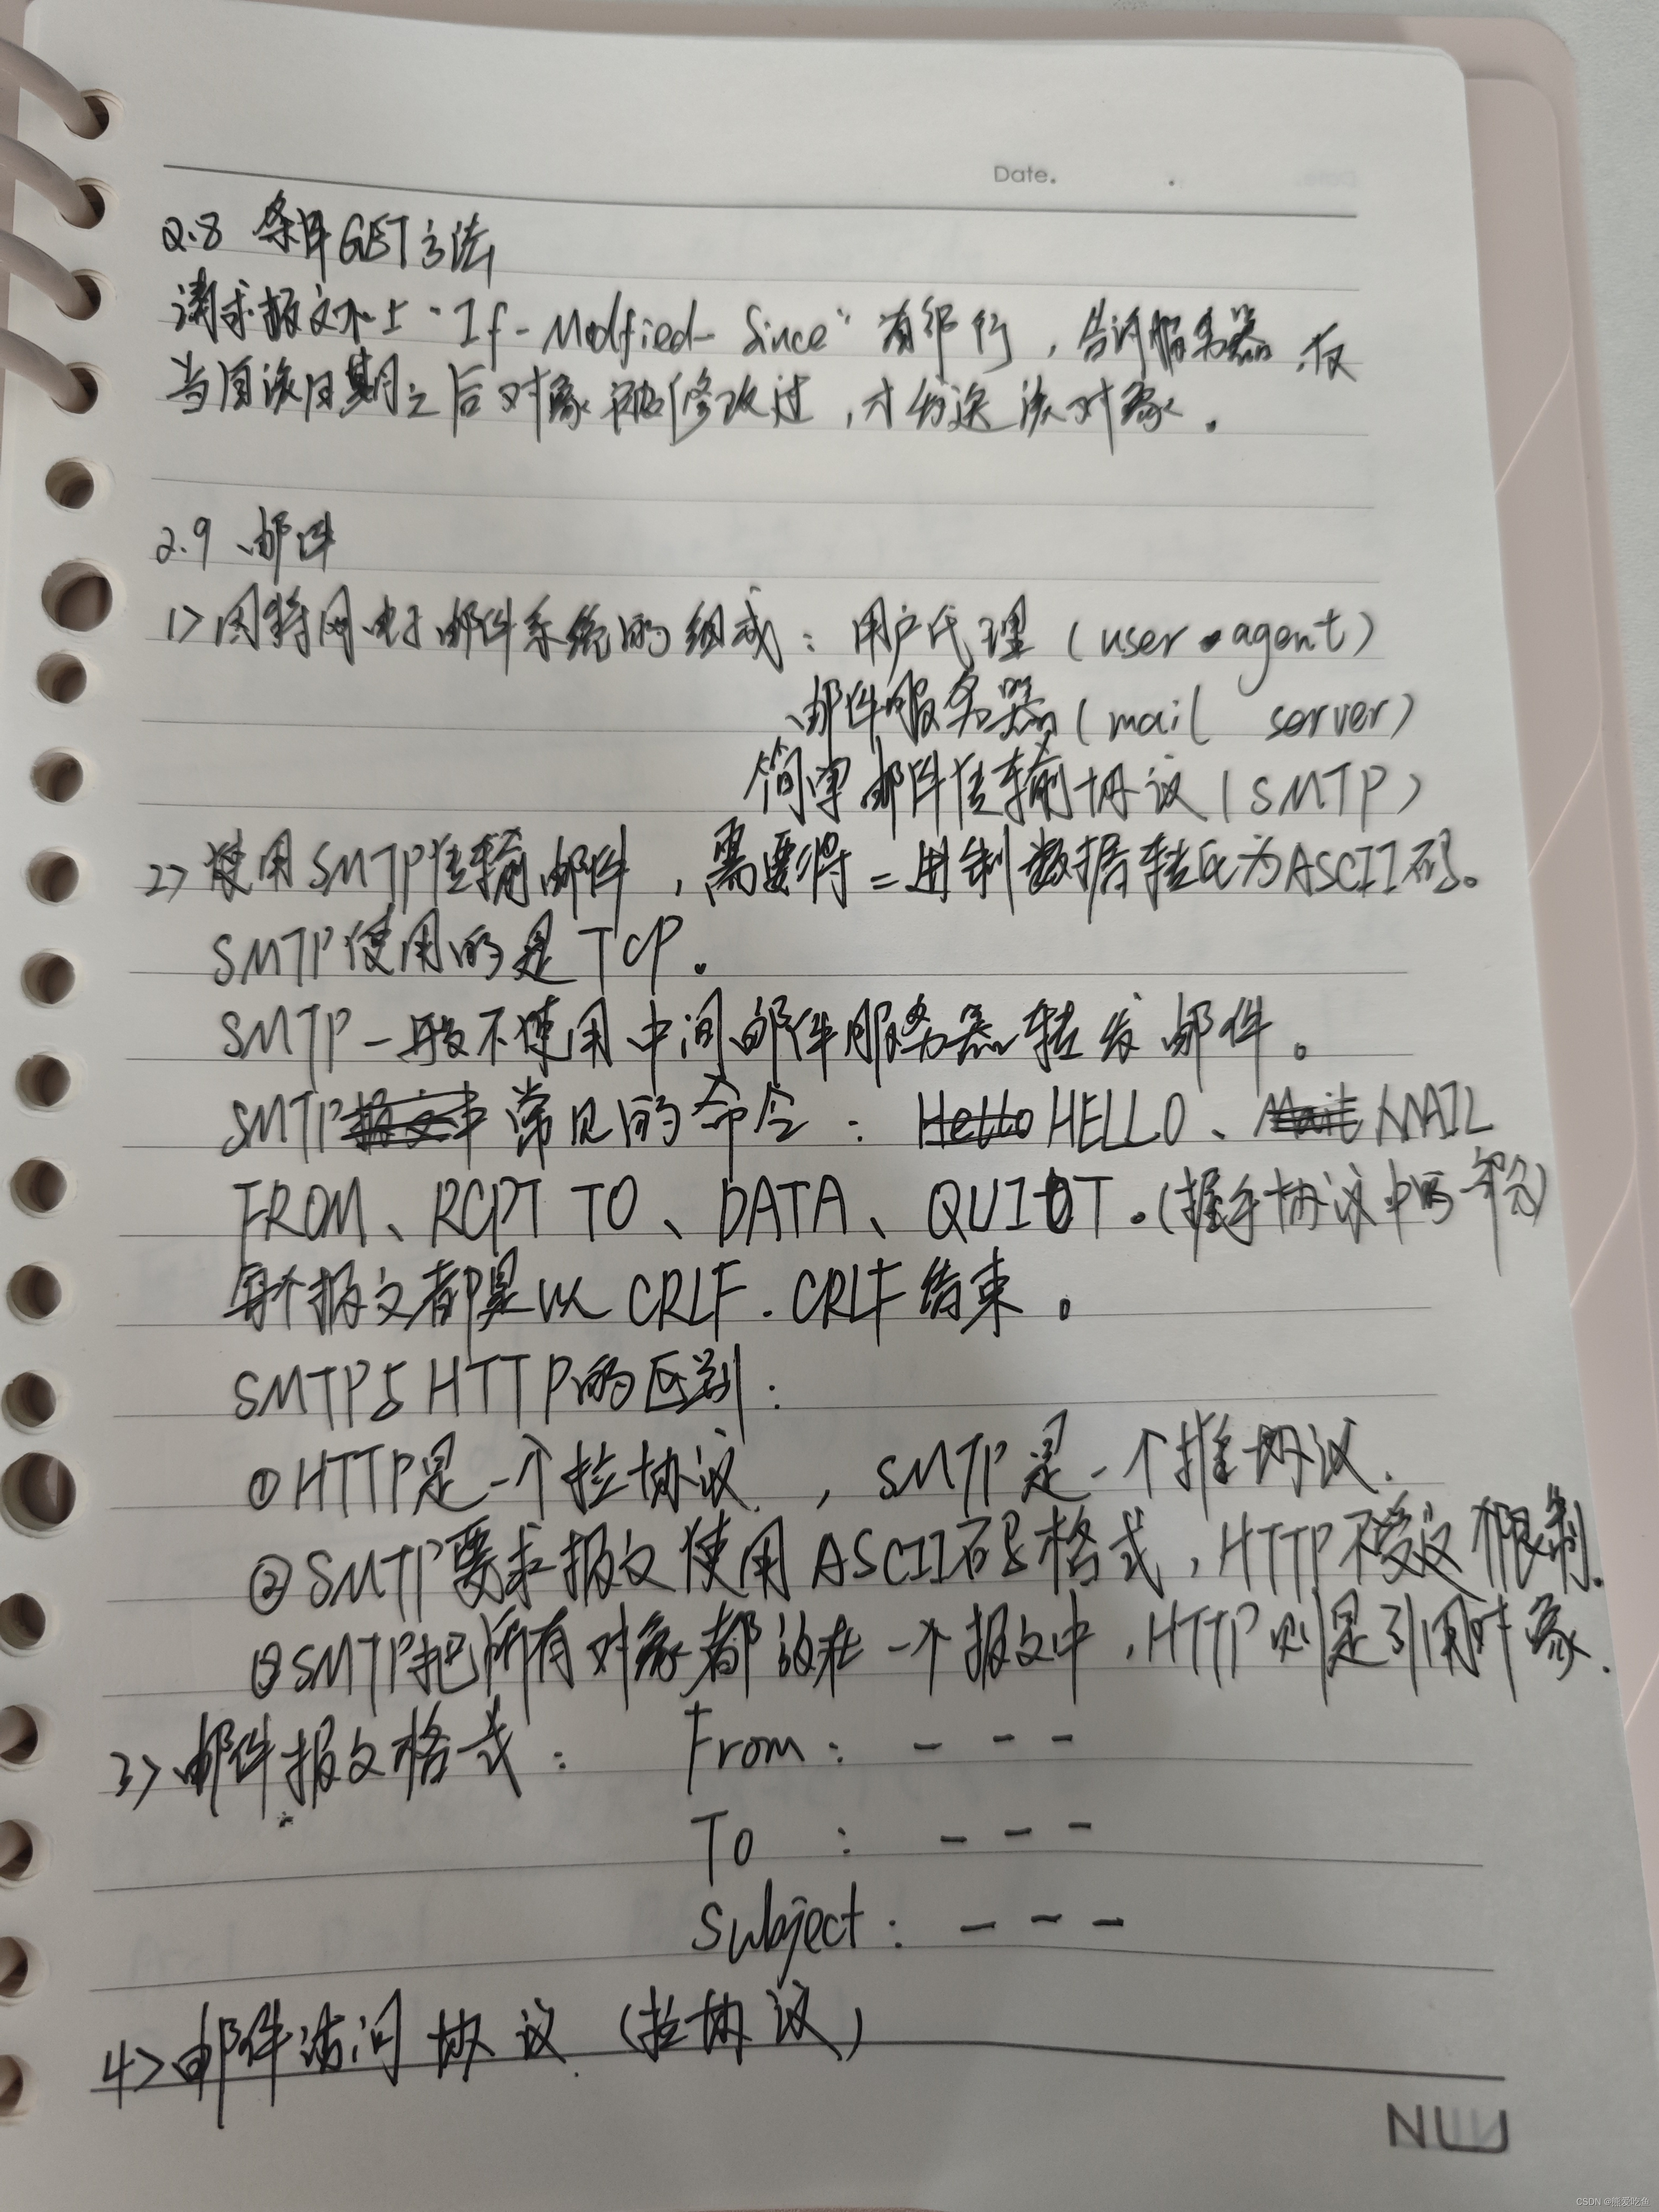 Date.
2.8 条件GET方法
请求报文加上“If-Modified-Since”首部行，告诉服务器，仅
当自该日期之后对象被修改过，才发送该对象。
2.9 邮件
1>因特网电子邮件系统的组成：用户代理（user agent）
邮件服务器（mail server）
简单邮件传输协议（SMTP）
2>使用SMTP传输邮件，需要将二进制数据转化为ASCII码。
SMTP使用的是TCP。
SMTP一般不使用中间邮件服务器转发邮件。
SMTP常见的命令：HELLO、MAIL
FROM、RCPT TO、DATA、QUIT。(握手协议中的一部分)
每个报文都是以CRLF.CRLF结束。
SMTP与HTTP的区别：
①HTTP是一个拉协议，SMTP是一个推协议.
②SMTP要求报文使用ASCII码格式，HTTP不受这限制.
③SMTP把所有对象都放在一个报文中，HTTP则是引用对象.
3>邮件报文格式： From: - - -
To : - - -
Subject: - - -
4>邮件访问协议（拉协议）
CSDN @熊爱吃鱼